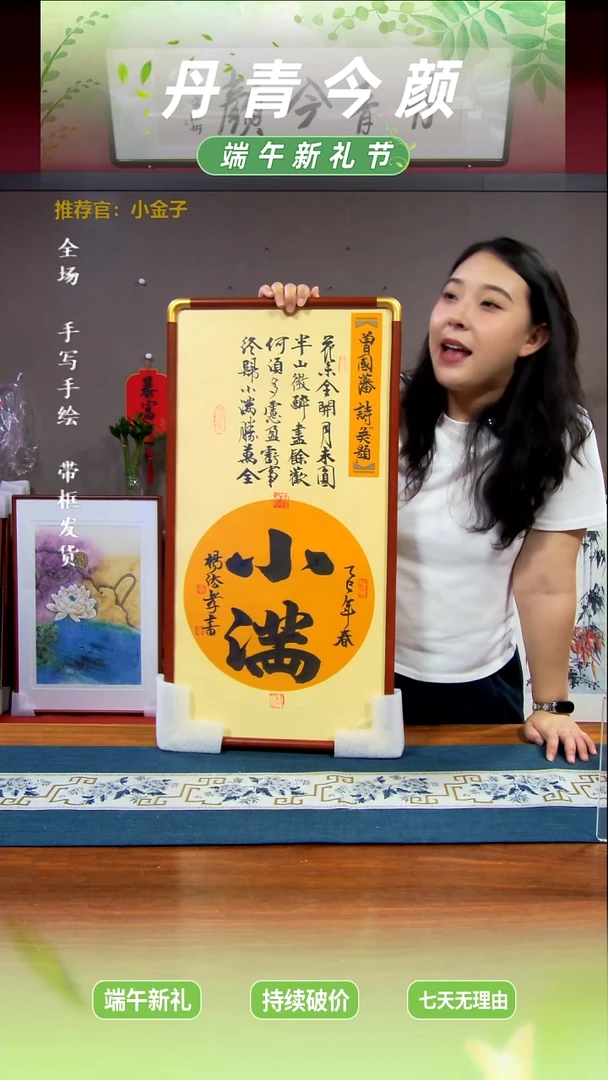 丹青今颜
端午新礼节
推荐官：小金子
全场
手写手绘
带框发货
曾國藩 詩
花未全開月未圓
半山微醉盡餘歡
何須多慮盈虧事
終歸小滿勝萬全
乙巳年春
小滿
暴富
端午新礼
持续破价
七天无理由